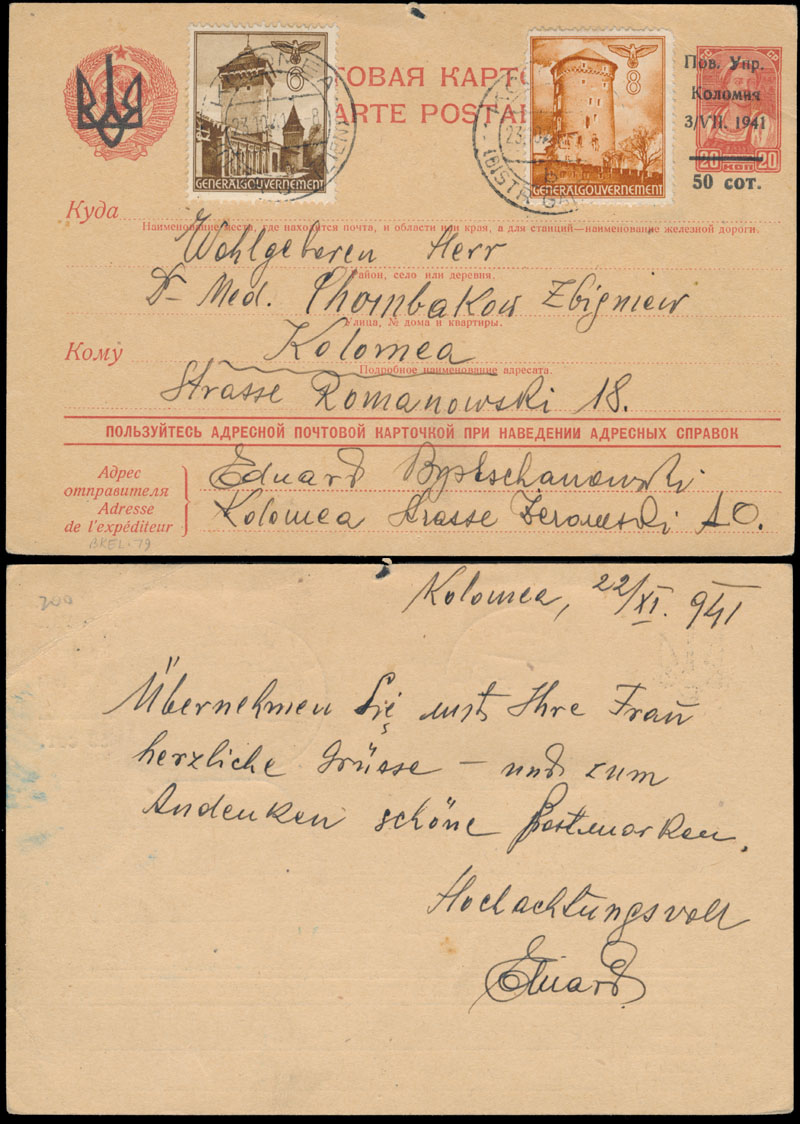 ПОЧТОВАЯ КАРТОЧКА
CARTE POSTALE
6
GENERALGOUVERNEMENT
8
GENERALGOUVERNEMENT
Пов. Упр.
Коломия
3/VII. 1941
20 КОП 20
50 сот.
Куда
Наименование места, где находится почта, и области или края, а для станций—наименование железной дороги.
Wohlgeboren Herr
Район, село или деревня.
Dr Med. Chombakow Zbigniew
Улица, № дома и квартиры.
Кому
Kolomea
Подробное наименование адресата.
Strasse Romanowski 18.
ПОЛЬЗУЙТЕСЬ АДРЕСНОЙ ПОЧТОВОЙ КАРТОЧКОЙ ПРИ НАВЕДЕНИИ АДРЕСНЫХ СПРАВОК
Адрес
отправителя
Adresse
de l'expéditeur
Eduard
Kolomea Strasse Żeromski 10.
BKEL-79
200
Kolomea, 22/XI. 941
Übernehmen Sie mit Ihre Frau
herzliche Grüsse — und zum
Andenken schöne Postmarken.
Hochachtungsvoll
Eduard